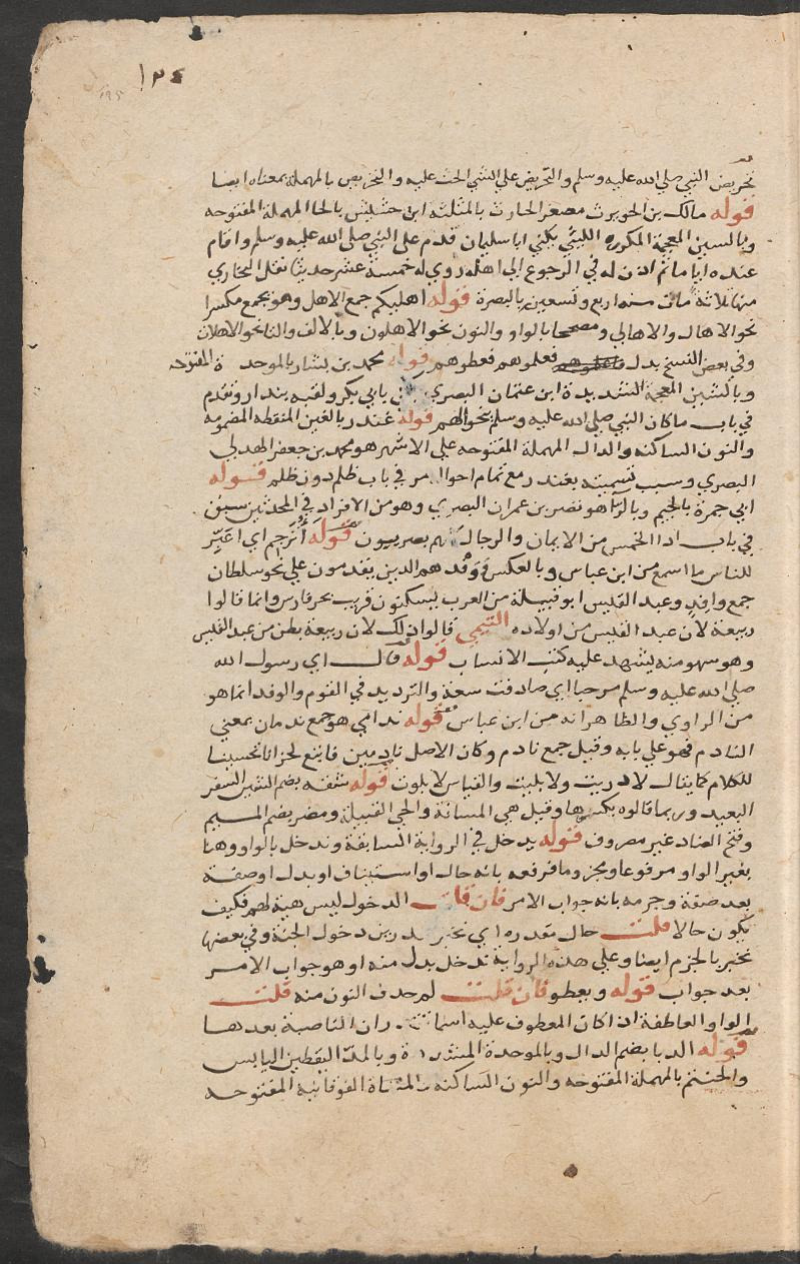 ١٣٤
195
تحريض النبي صلي الله عليه وسلم والتحريض علي الشي الحث عليه والتحريص بالمهملة بمعناه ايضا
قوله مالك بن الحويرث مصغر الحارث بالمثلثه ابن حشيش بالحا المهملة المفتوحه
وبالسين المعجمة المكرره الليثي يكني ابا سليمان قدم علي النبي صلي الله عليه وسلم واقام
عنده اياما ثم اذن له في الرجوع الي اهله روي له خمسة عشر حديثا نقل البخاري
منها ثلاثة مات سنه اربع وتسعين بالبصرة قوله اهليكم جمع الاهل وهو يجمع مكسرا
نحو الاهال والاهالي ومصححا بالواو والنون نحو الاهلون وبالالف والتا نحو الاهلات
وفي بعض النسخ بدل فعلموهم فعظوهم قوله محمد بن بشار بالموحدة المفتوحه
وبالشين المعجمة الشديدة ابن عثمان البصري يكني بابي بكر ولقبه بندار وتقدم
في باب ماكان النبي صلي الله عليه وسلم يتخولهم قوله غندر بالغين المنقطه المضمومه
والنون الساكنه والدال المهملة المفتوحه علي الاشهر هو محمد بن جعفر الهذلي
البصري وسبب تسميته بغندر مع تمام احواله مر في باب ظلم دون ظلم قوله
ابي جمرة بالجيم وبالرا هو نصر بن عمران البصري وهو من الافراد في المحدثين سبق
في باب ادا الخمس من الايمان والرجال كلهم بصريون قوله اترجم اي اعبر
للناس ما اسمع من ابن عباس وبالعكس ووفد هم الذين يقدمون علي نحو سلطان
جمع وافد وعبد القيس ابو قبيلة من العرب يسكنون قريب بحر فارس وانما قالوا
ربيعة لان عبد القيس من اولاده التيمي قالوا ذلك لان ربيعة بطن من عبد القيس
وهو سهو منه يشهد عليه كتب الانساب قوله قال اي رسول الله
صلي الله عليه وسلم مرحبا اي صادفت سعة والترديد في القوم والوفد انما هو
من الراوي والظاهر انه من ابن عباس قوله ندامي هو جمع ندمان بمعني
النادم فهو علي بابه وقيل جمع نادم وكان الاصل نادمين فاتبع لخزايا تحسينا
للكلام كما يقال لا دريت ولا تليت والقياس لا تلوت قوله شقه بضم الشين السفر
البعيد وربما قالوه بكسرها وقيل هي المسافة والحي القبيلة ومضر بضم الميم
وفتح الضاد غير مصروف قوله يدخل في الرواية السابقة وندخل بالواو وهنا
بغير الواو مرفوعا ومجزوما فرفعه بانه حال او استيناف او بدل او صفة
بعد صفة وجزمه بانه جواب الامر فان قلت الدخول ليس هيئة لهم فكيف
يكون حالا قلت حال مقدره اي نخبر مقدرين دخول الجنة وفي بعضها
نخبر بالجزم ايضا وعلي هذه الرواية ندخل بدل منه او هو جواب الامر
بعد جواب قوله وتعطوا فان قلت لم حذف النون منه قلت
الواو العاطفة اذا كان المعطوف عليه اسما تقدر ان الناصبة بعدها
قوله الدبا بضم الدال وبالموحدة المشددة وبالمد اليقطين اليابس
والحنتم بالمهملة المفتوحه والنون الساكنه والمثناة الفوقانيه المفتوحه